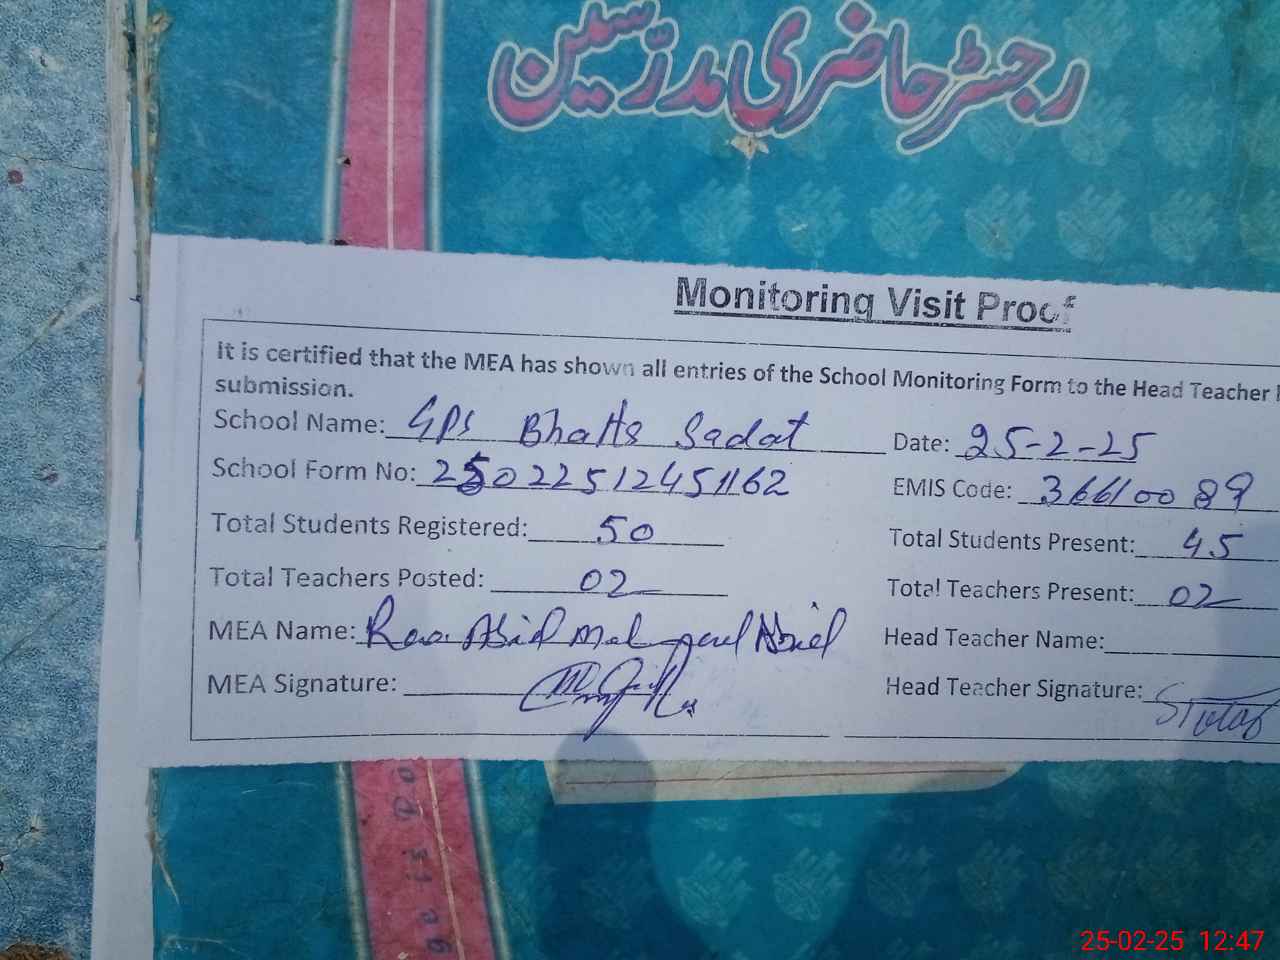 رجسٹر حاضری مدرّسین
Monitoring Visit Proof
It is certified that the MEA has shown all entries of the School Monitoring Form to the Head Teacher
submission.
School Name: GPS Bhatta Sadat Date: 25-2-25
School Form No: 25022512451162 EMIS Code: 36610089
Total Students Registered: 50 Total Students Present: 45
Total Teachers Posted: 02 Total Teachers Present: 02
MEA Name: Rao Abid Head Teacher Name:
MEA Signature: Head Teacher Signature:
25-02-25 12:47